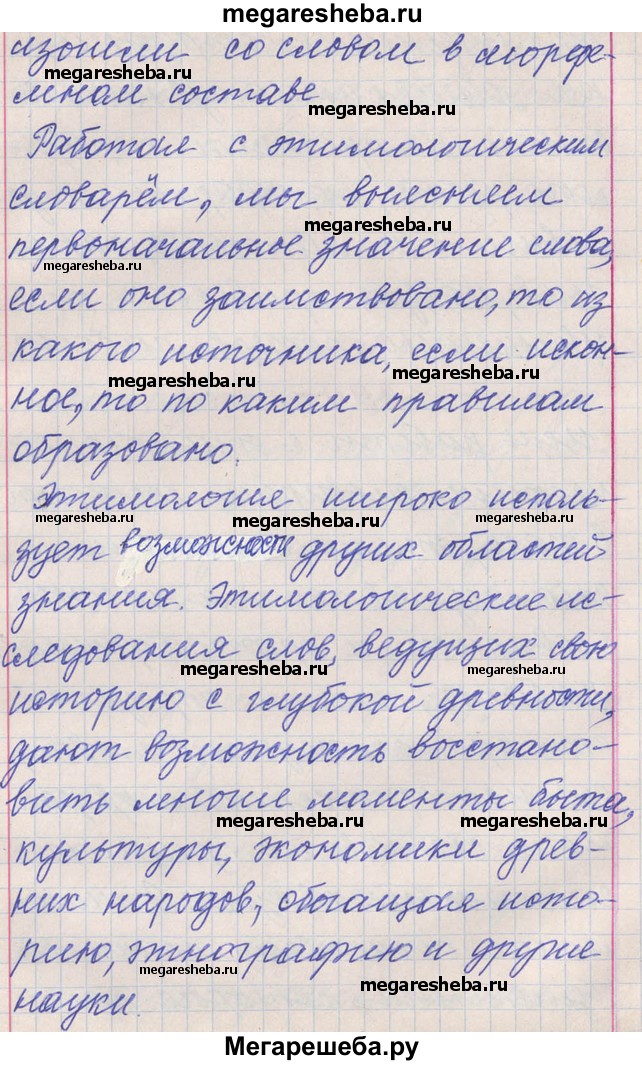 megaresheba.ru
изошли со словом в морфе-
megaresheba.ru
мном составе
megaresheba.ru
Работая с этимологическим
словарём, мы выясняем
megaresheba.ru
первоначальное значение слова,
megaresheba.ru
если оно заимствовано, то из
какого источника, если искон-
megaresheba.ru megaresheba.ru
ное, то по каким правилам
образовано.
Этимология широко исполь-
megaresheba.ru megaresheba.ru megaresheba.ru
зует возможности других областей
знания. Этимологические ис-
следования слов, ведущих свою
megaresheba.ru megaresheba.ru
историю с глубокой древности,
дают возможность восстано-
вить многие моменты быта,
megaresheba.ru megaresheba.ru
культуры, экономики древ-
них народов, обогащая исто-
рию, этнографию и другие
megaresheba.ru
науки.
megaresheba.ru
Мегарешеба.ру